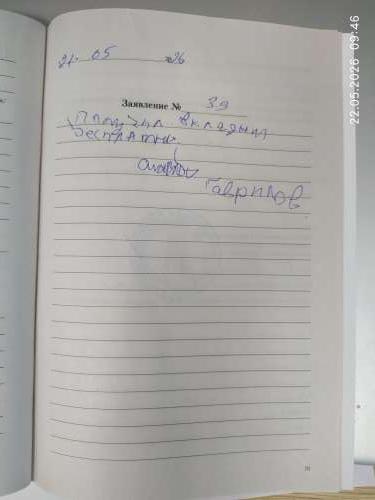 21. 05 26
Заявление № 39
Получил вкладыш
бесплатно.
Гаврилов
22.05.2026 09:46